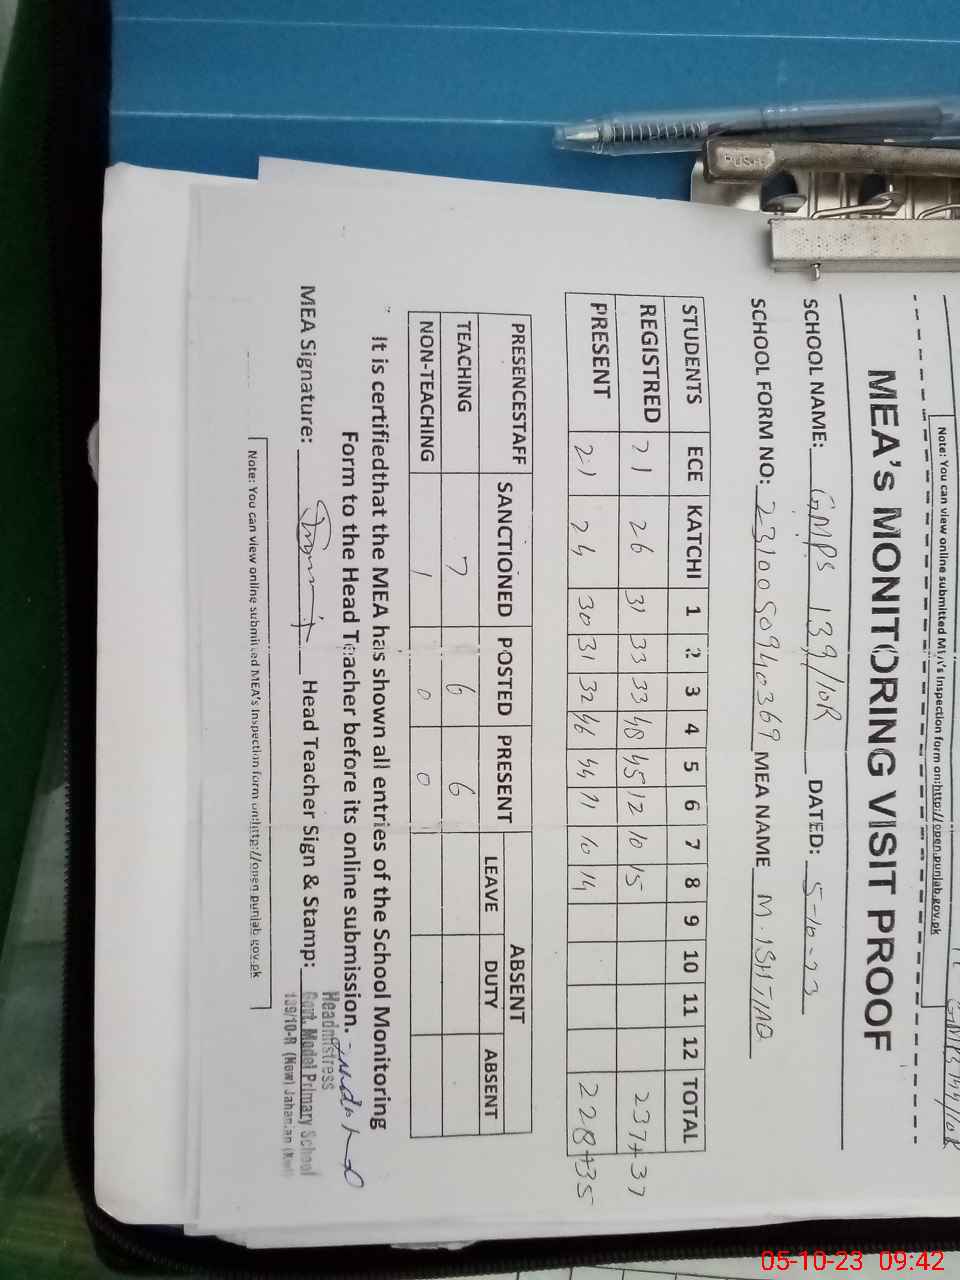 Note: You can view online submitted MEA's Inspection form on:http://open.punjab.gov.pk
MEA's MONITORING VISIT PROOF
SCHOOL NAME: GMPS 139/10R DATED: 5-10-23
SCHOOL FORM NO: 23100509940369 MEA NAME M. ISHTIAQ
STUDENTS ECE KATCHI 1 2 3 4 5 6 7 8 9 10 11 12 TOTAL
REGISTRED 21 26 31 33 33 48 45 12 10 15 237+37
PRESENT 21 24 30 31 32 46 44 11 10 14 228+35
PRESENCESTAFF SANCTIONED POSTED PRESENT ABSENT
LEAVE DUTY ABSENT
TEACHING 7 6 6
NON-TEACHING 1 0 0
It is certifiedthat the MEA has shown all entries of the School Monitoring
Form to the Head Teacher before its online submission.
MEA Signature: Head Teacher Sign & Stamp:
Headmistress
Govt. Model Primary School
139/10-R (New) Jahanian
Note: You can view online submitted MEA's Inspection form on:http://open.punjab.gov.pk
PUSH
05-10-23 09:42